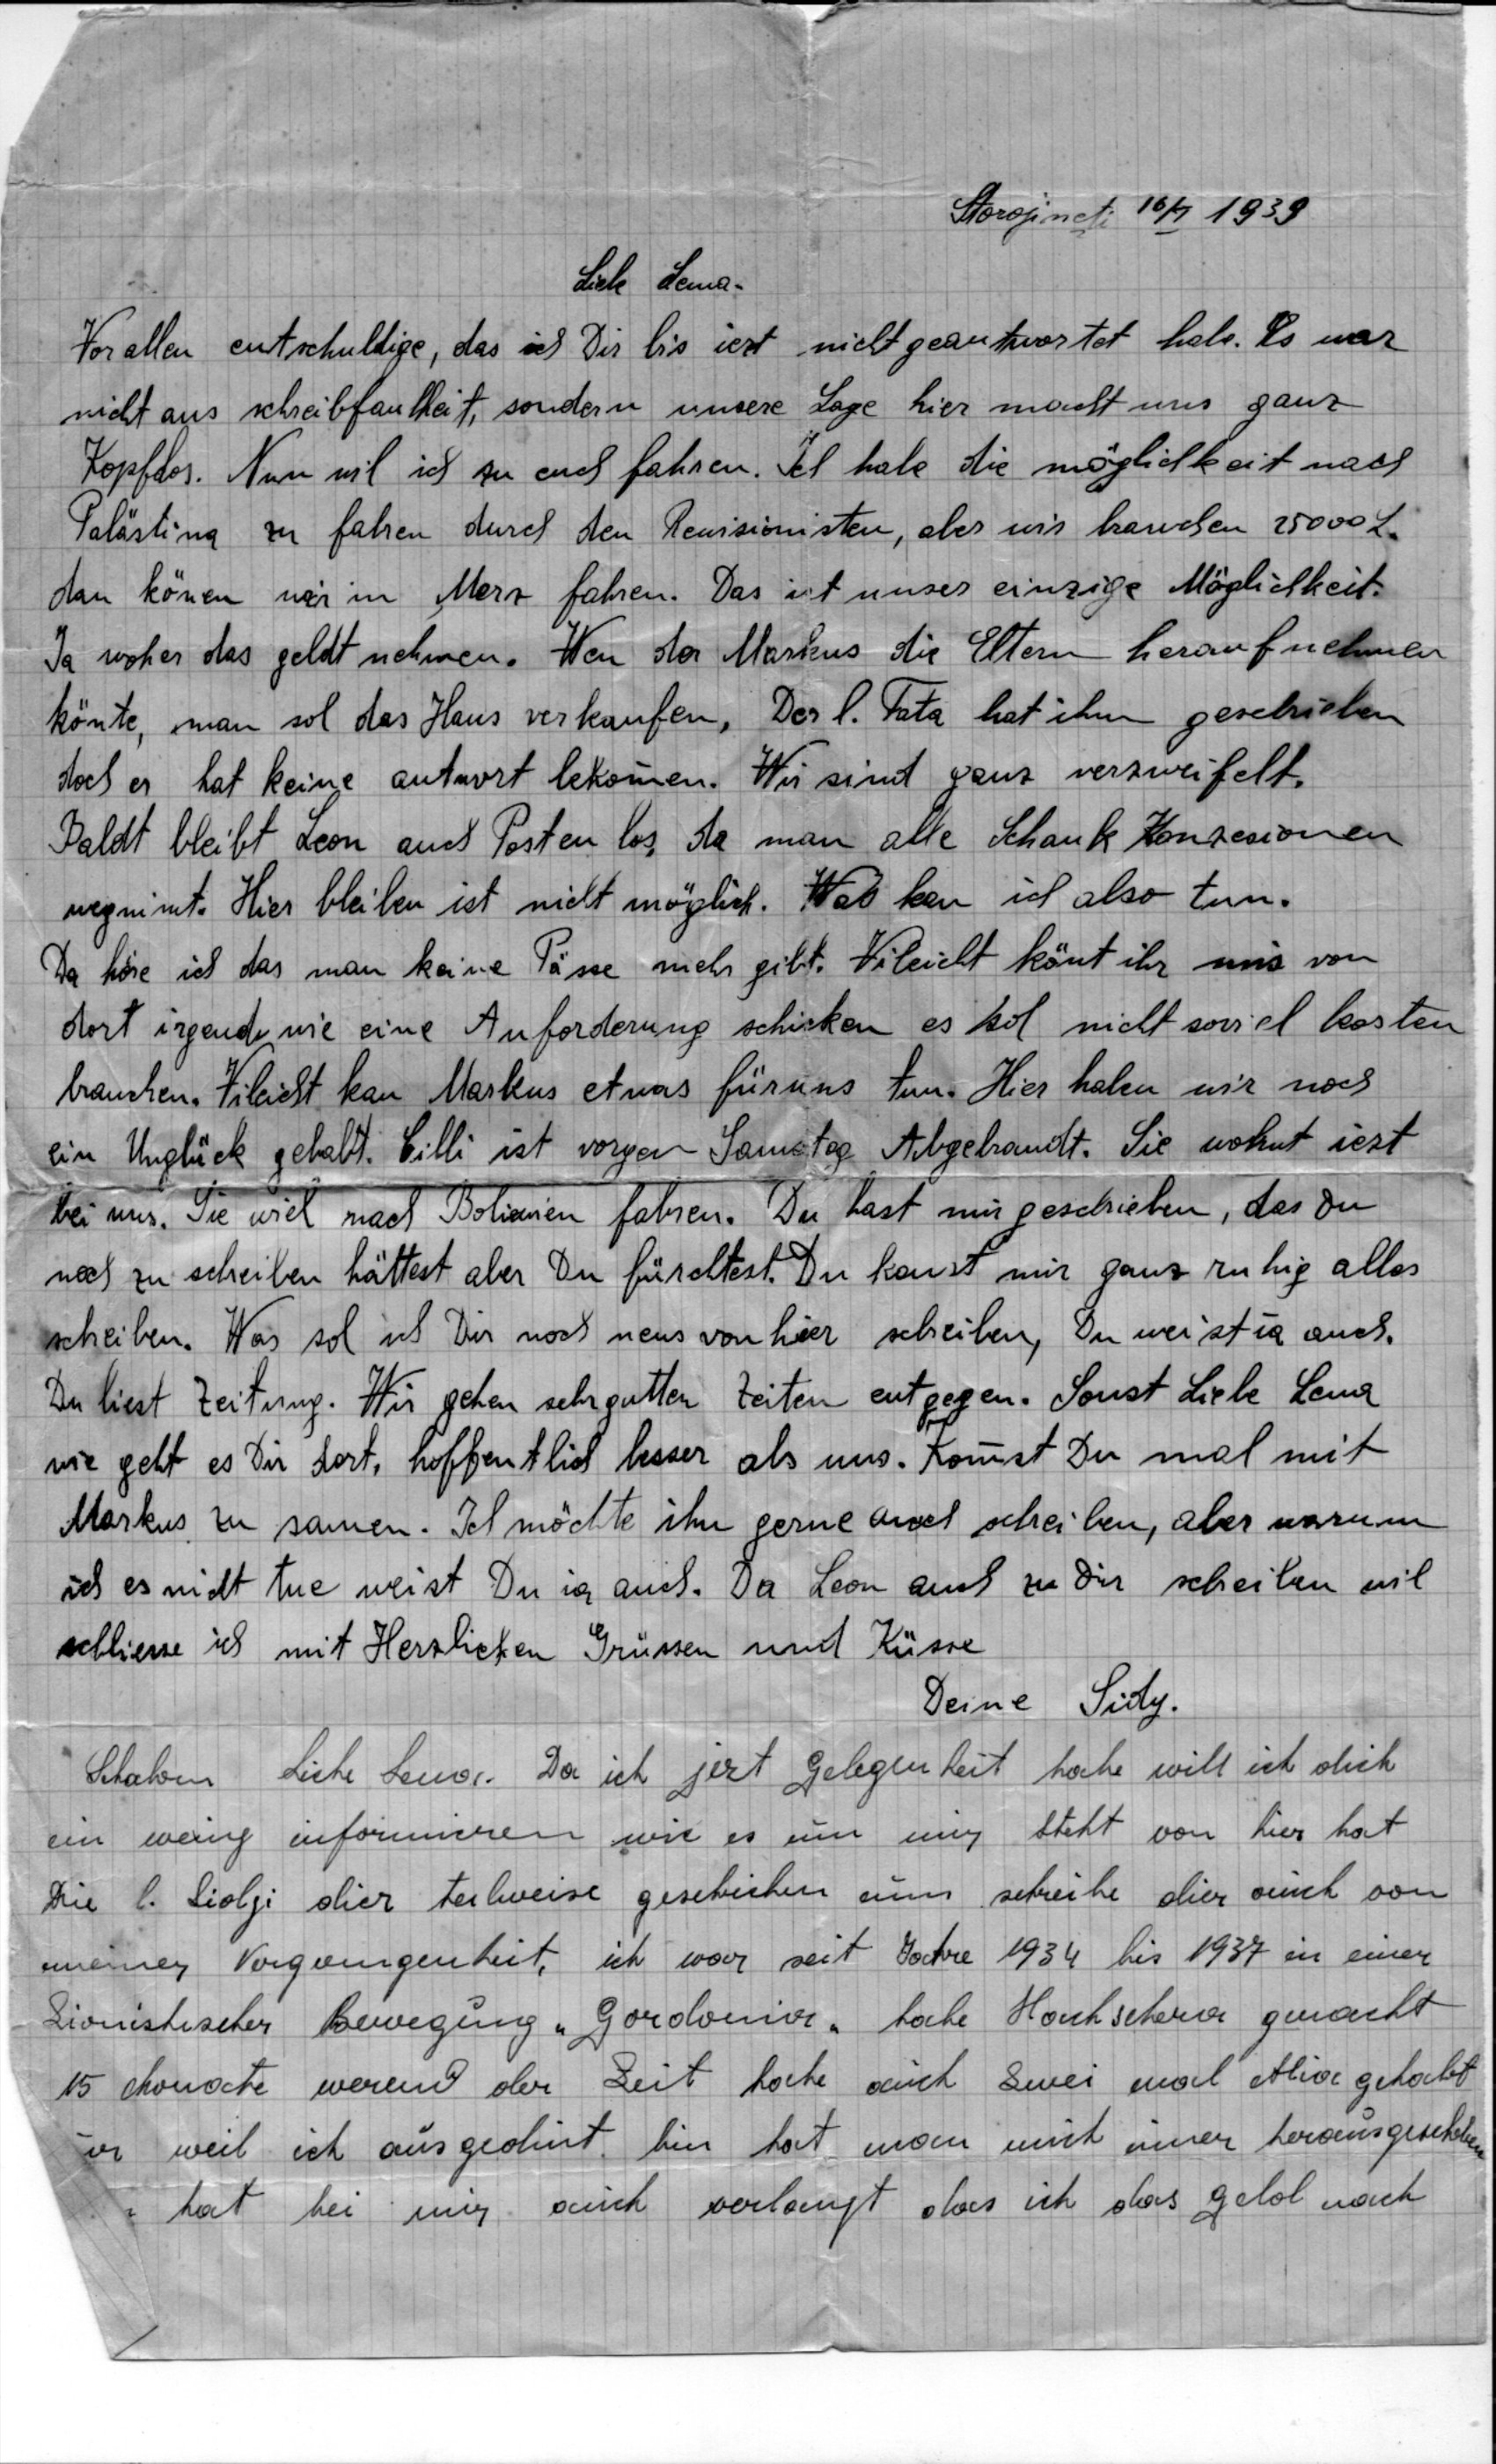 Storojineti 16/I 1939
Liebe Lema-
Vor allen entschuldige, das ich Dir bis iezt nicht geantwortet habe. Es war
nicht aus schreibfaulheit, sondern unsere Lage hier macht uns ganz
Kopflos. Nun wil ich zu euch fahren. Ich habe die möglichkeit nach
Palästina zu fahren durch den Revisionisten, aber wir brauchen 25000 L.
dan könen wir in Merz fahren. Das ist unser einzige Möglichkeit.
Ja woher das geldt nehmen. Wen der Markus die Eltern heraufnehmen
könte, man sol das Haus verkaufen, Der l. Tata hat ihm geschrieben
doch er hat keine antwort bekom̄en. Wir sind ganz verzweifelt.
Baldt bleibt Leon auch Posten los, da man alle Schank Konzesionen
wegnimt. Hier bleiben ist nicht möglich. Was kan ich also tun.
Da höre ich das man keine Pässe mehr gibt. Vileicht könt ihr uns von
dort irgendwie eine Anforderung schicken es sol nicht soviel kosten
brauchen. Vileicht kan Markus etwas für uns tun. Hier haben wir noch
ein Unglück gehabt. Cilli ist vorgen Samstag Abgebrandt. Sie wohnt iezt
bei uns. Sie wiel nach Bolivien fahren. Du hast mir geschrieben, das Du
noch zu schreiben hättest aber Du fürchtest. Du kanst mir ganz ruhig alles
schreiben. Was sol ich Dir noch neus von hier schreiben, Du weist ia auch.
Du liest Zeitung. Wir gehen sehr gutten Zeiten entgegen. Sonst Liebe Lema
wie geht es Dir dort, hoffentlich besser als uns. Kom̄st Du mal mit
Markus zu samen. Ich möchte ihm gerne auch schreiben, aber warum
ich es nicht tue weist Du ia auch. Da Leon auch zu Dir schreiben wil
schliesse ich mit Herzlichen Grüssen und Küsse
Deine Sidy.
Schalom Liebe Lema. Da ich jezt Gelegenheit habe will ich dich
ein wenig informieren wie es um mir steht von hier hat
Die l. Sidy dier teilweise geschrieben nun schreibe dier auch von
meiner Vergangenheit, ich war seit Jahre 1934 bis 1937 in einer
Zionistischer Bewegung „Gordonia„ habe Hachschara gemacht
15 Monate werend der Zeit habe auch zwei mal Alia gehabt
weil ich ausgedint bin hat man mich imer herausgeschoben
hat bei mir auch verlangt das ich das Geld nach